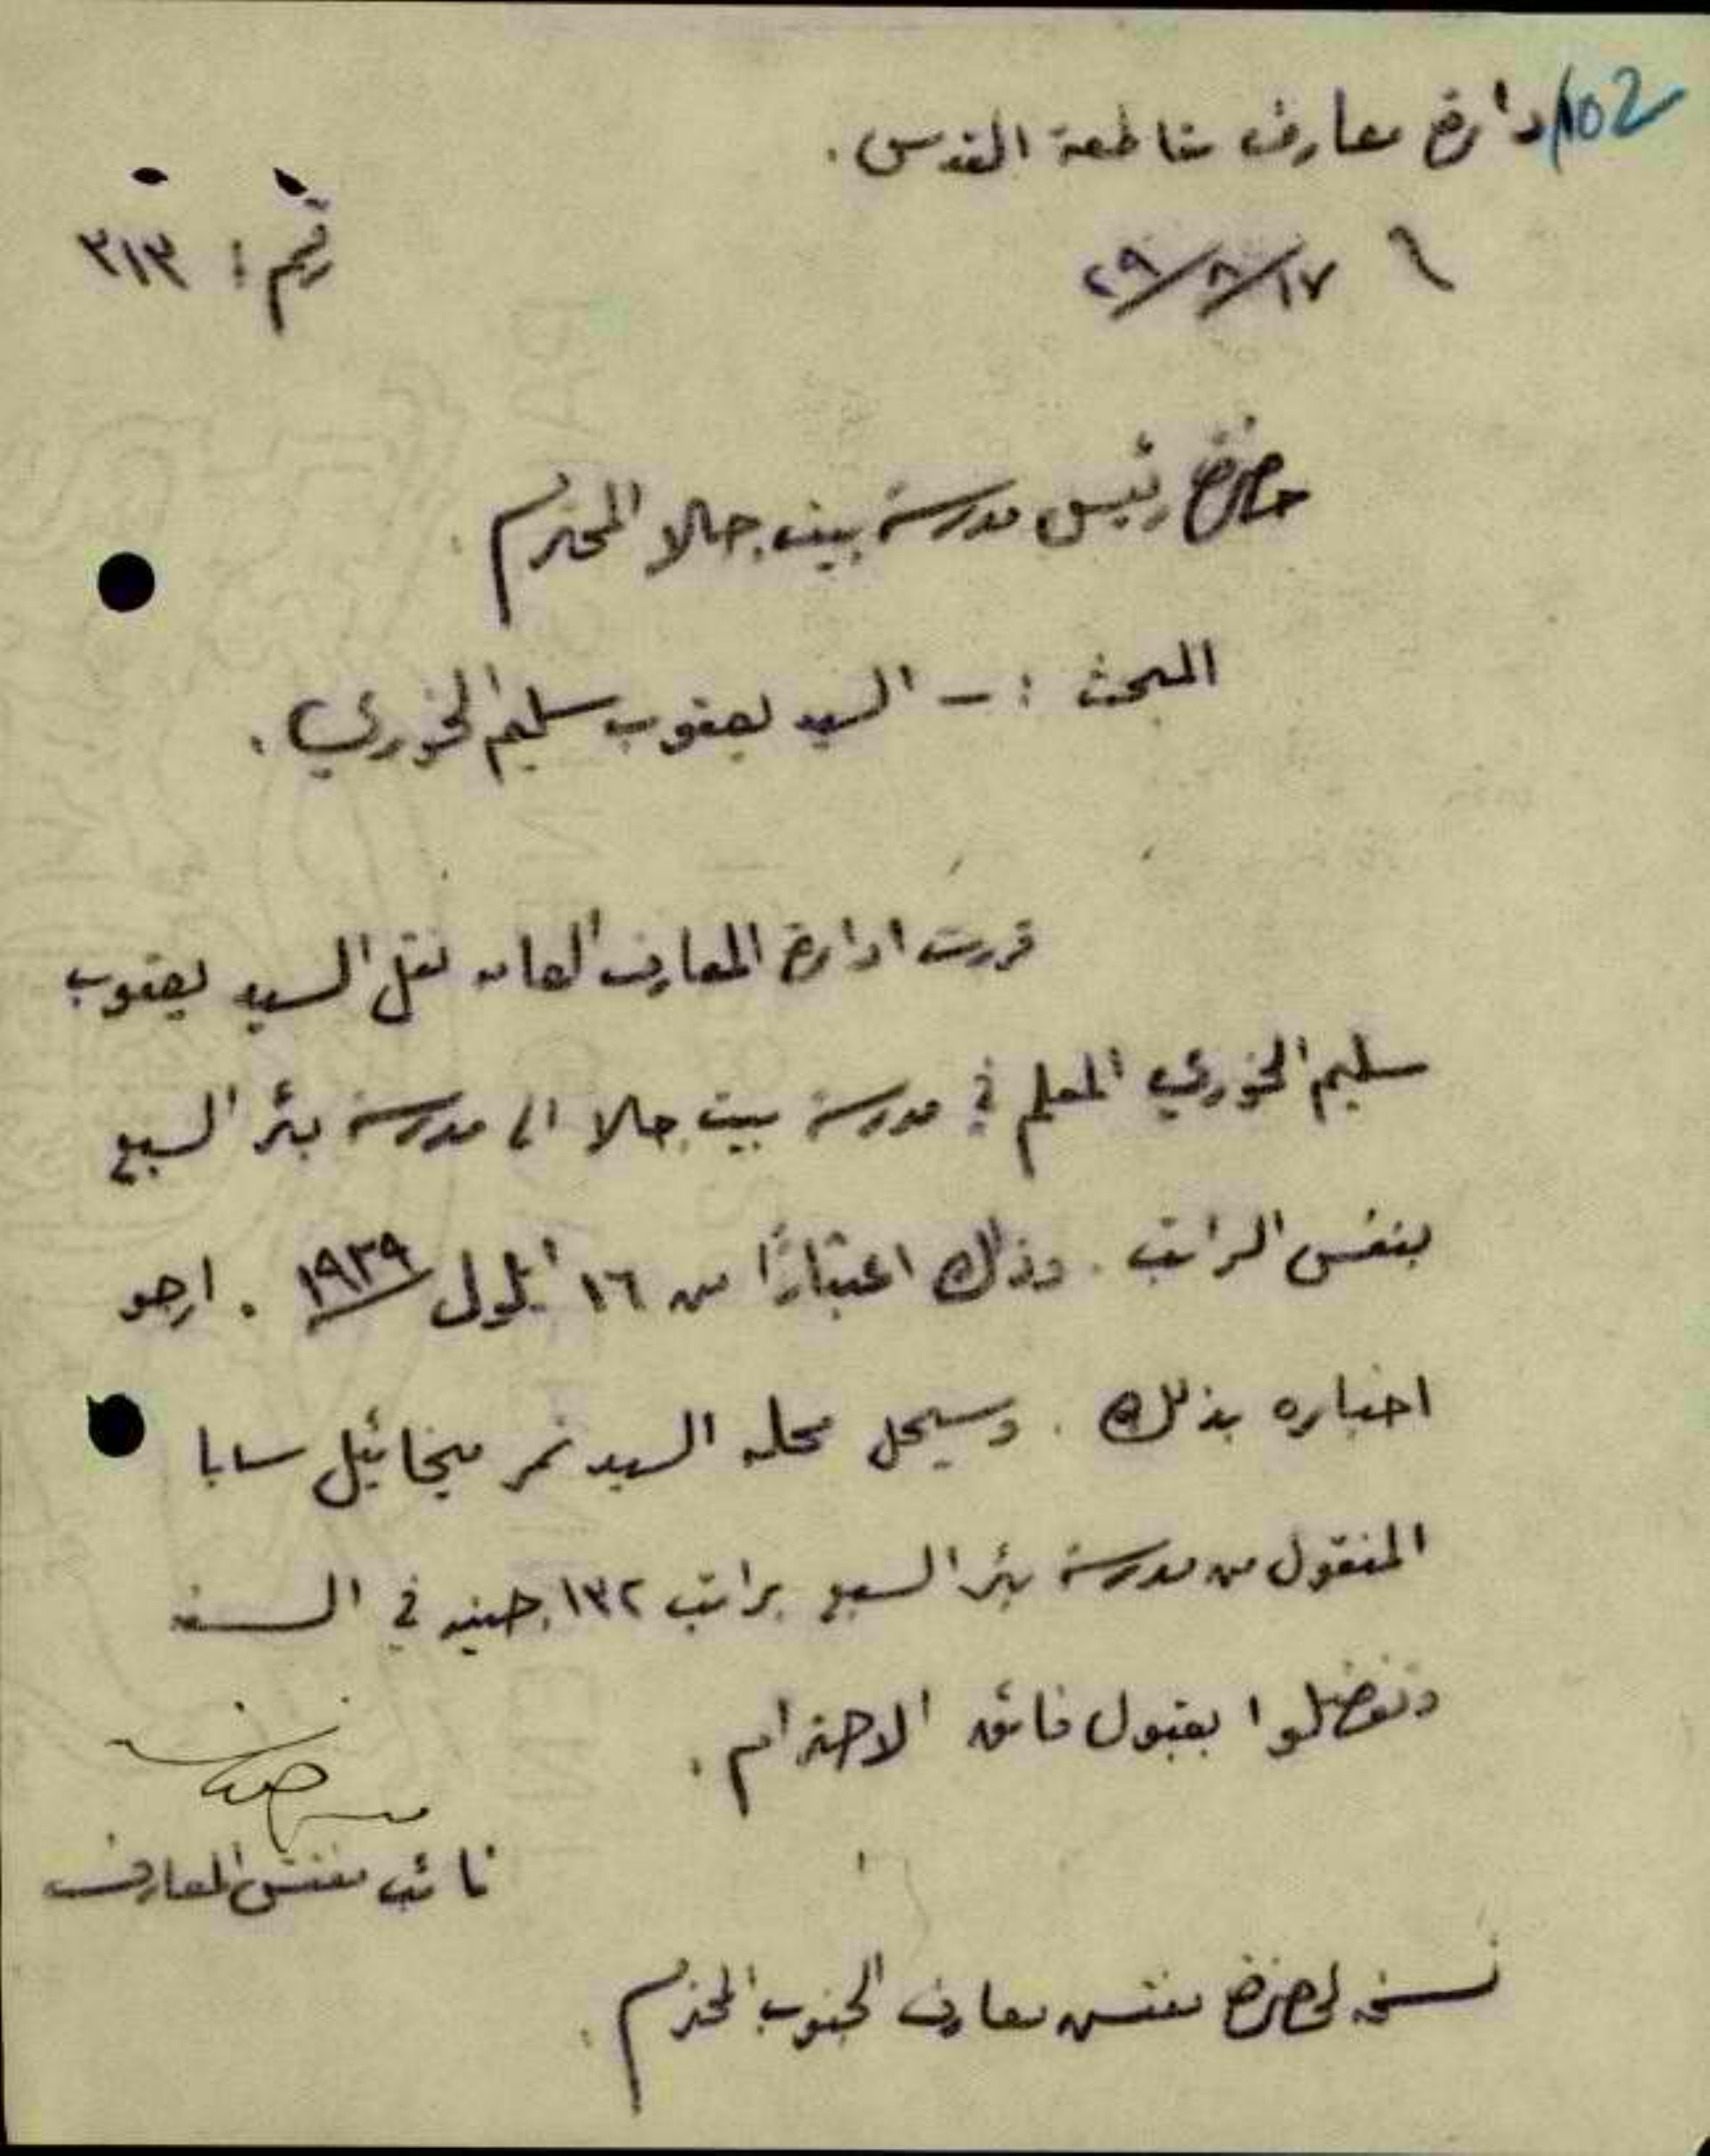 102
ادارة معارف مقاطعة القدس.
١٧/٨/٣٩
رقم : ٣١٣
حضرة رئيس مدرسة بيت جالا المحترم.
المبحث :- السيد يعقوب سليم الخوري.
قررت ادارة المعارف العامه نقل السيد يعقوب
سليم الخوري المعلم في مدرسة بيت جالا الى مدرسة بئر السبع
بنفس الراتب. وذلك اعتبارًا من ١٦ ايلول ١٩٣٩. ارجو
اخباره بذلك. وسيحل محله السيد نمر ميخائيل سابا
المنقول من مدرسة بئر السبع براتب ١٣٢ جنيه في السنه
وتفضلوا بقبول فائق الاحترام.
نائب مفتش المعارف
نسخه لحضرة مفتش معارف الجنوب المحترم.